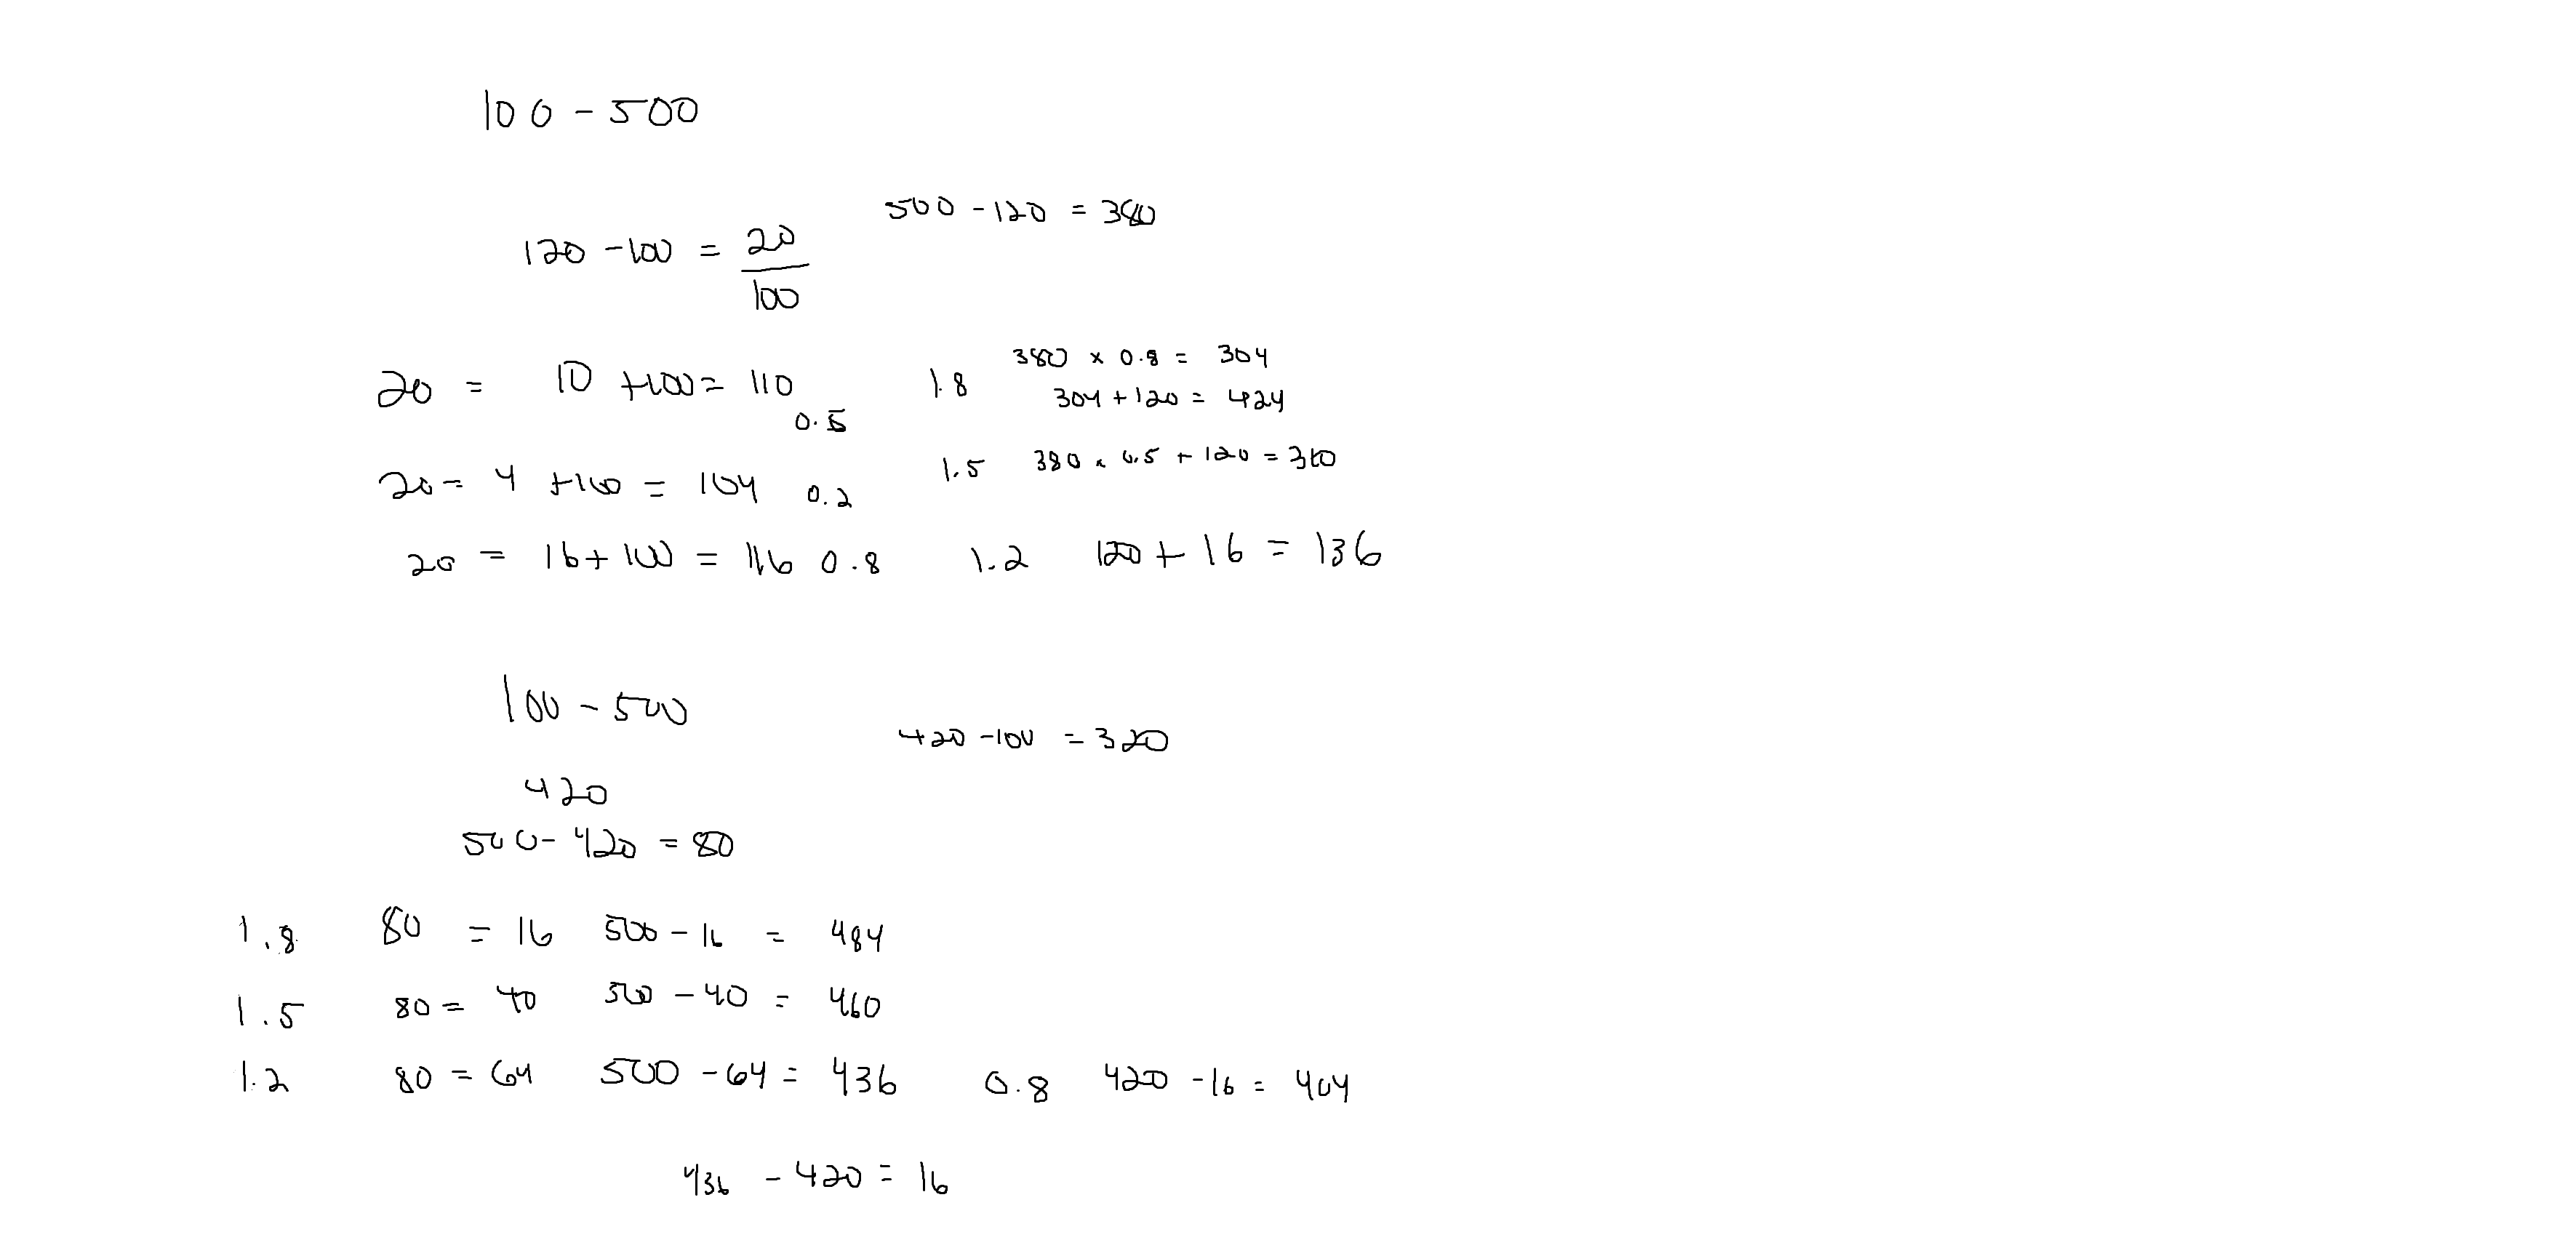 100 - 500
500 - 120 = 380
120 - 100 = 20/100
20 = 10 + 100 = 110 0.5
1.8 380 x 0.8 = 304
304 + 120 = 424
20 = 4 + 100 = 104 0.2
1.5 380 x 0.5 + 120 = 310
20 = 16 + 100 = 116 0.8
1.2 120 + 16 = 136
100 - 500
420 - 100 = 320
420
500 - 420 = 80
1.8 80 = 16 500 - 16 = 484
1.5 80 = 40 500 - 40 = 460
1.2 80 = 64 500 - 64 = 436 0.8 420 - 16 = 404
436 - 420 = 16